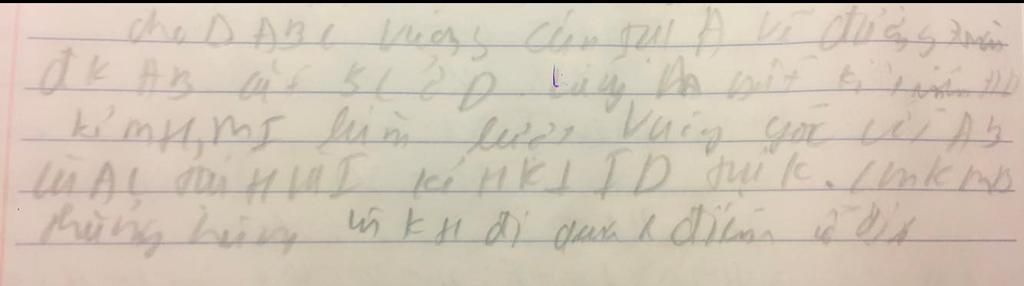 cho D ABC vuông cân tại A vẽ đường tròn
đk AB cắt BC ở D. Lấy M bất kì trên AD
kẻ MH, MI lần lượt vuông góc với AB
và AC tại H và I kẻ HK⊥ID tại K. Cm K M B
thẳng hàng và KH đi qua 1 điểm cố định